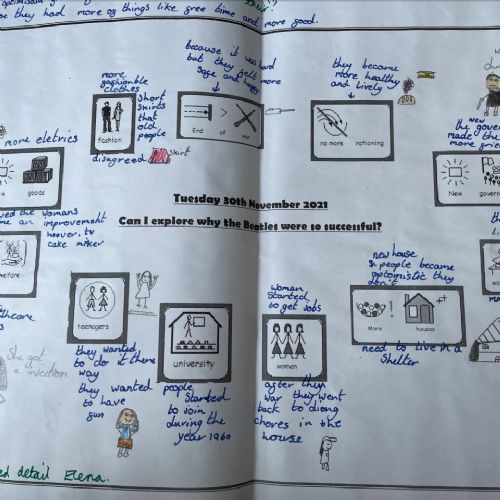 they had more of things like free time and more good.
because it was hard
but they felt
safe and happy more
they became
more healthy
and lively
more
fashionable
clothes
short
skirts
that
old
people
disagreed
skirt
fashion
End of war
no more rationing
more eletrics
goods
new
the gover
made the
more
New govern
Tuesday 30th November 2021
Can I explore why the Beatles were so successful?
the womans
an improvement
hoover, to
cake mixer
welfare
teenagers
they wanted
to do it there
way
they wanted
to have
fun
university
people
started
to join
during the
year 1960
woman
started
to get jobs
women
after then
war they went
back to diong
chores in the
house
new house
& people became
optomistic they
don't
More houses
need to live in a
shelter
She got
a infection
detail Elena.